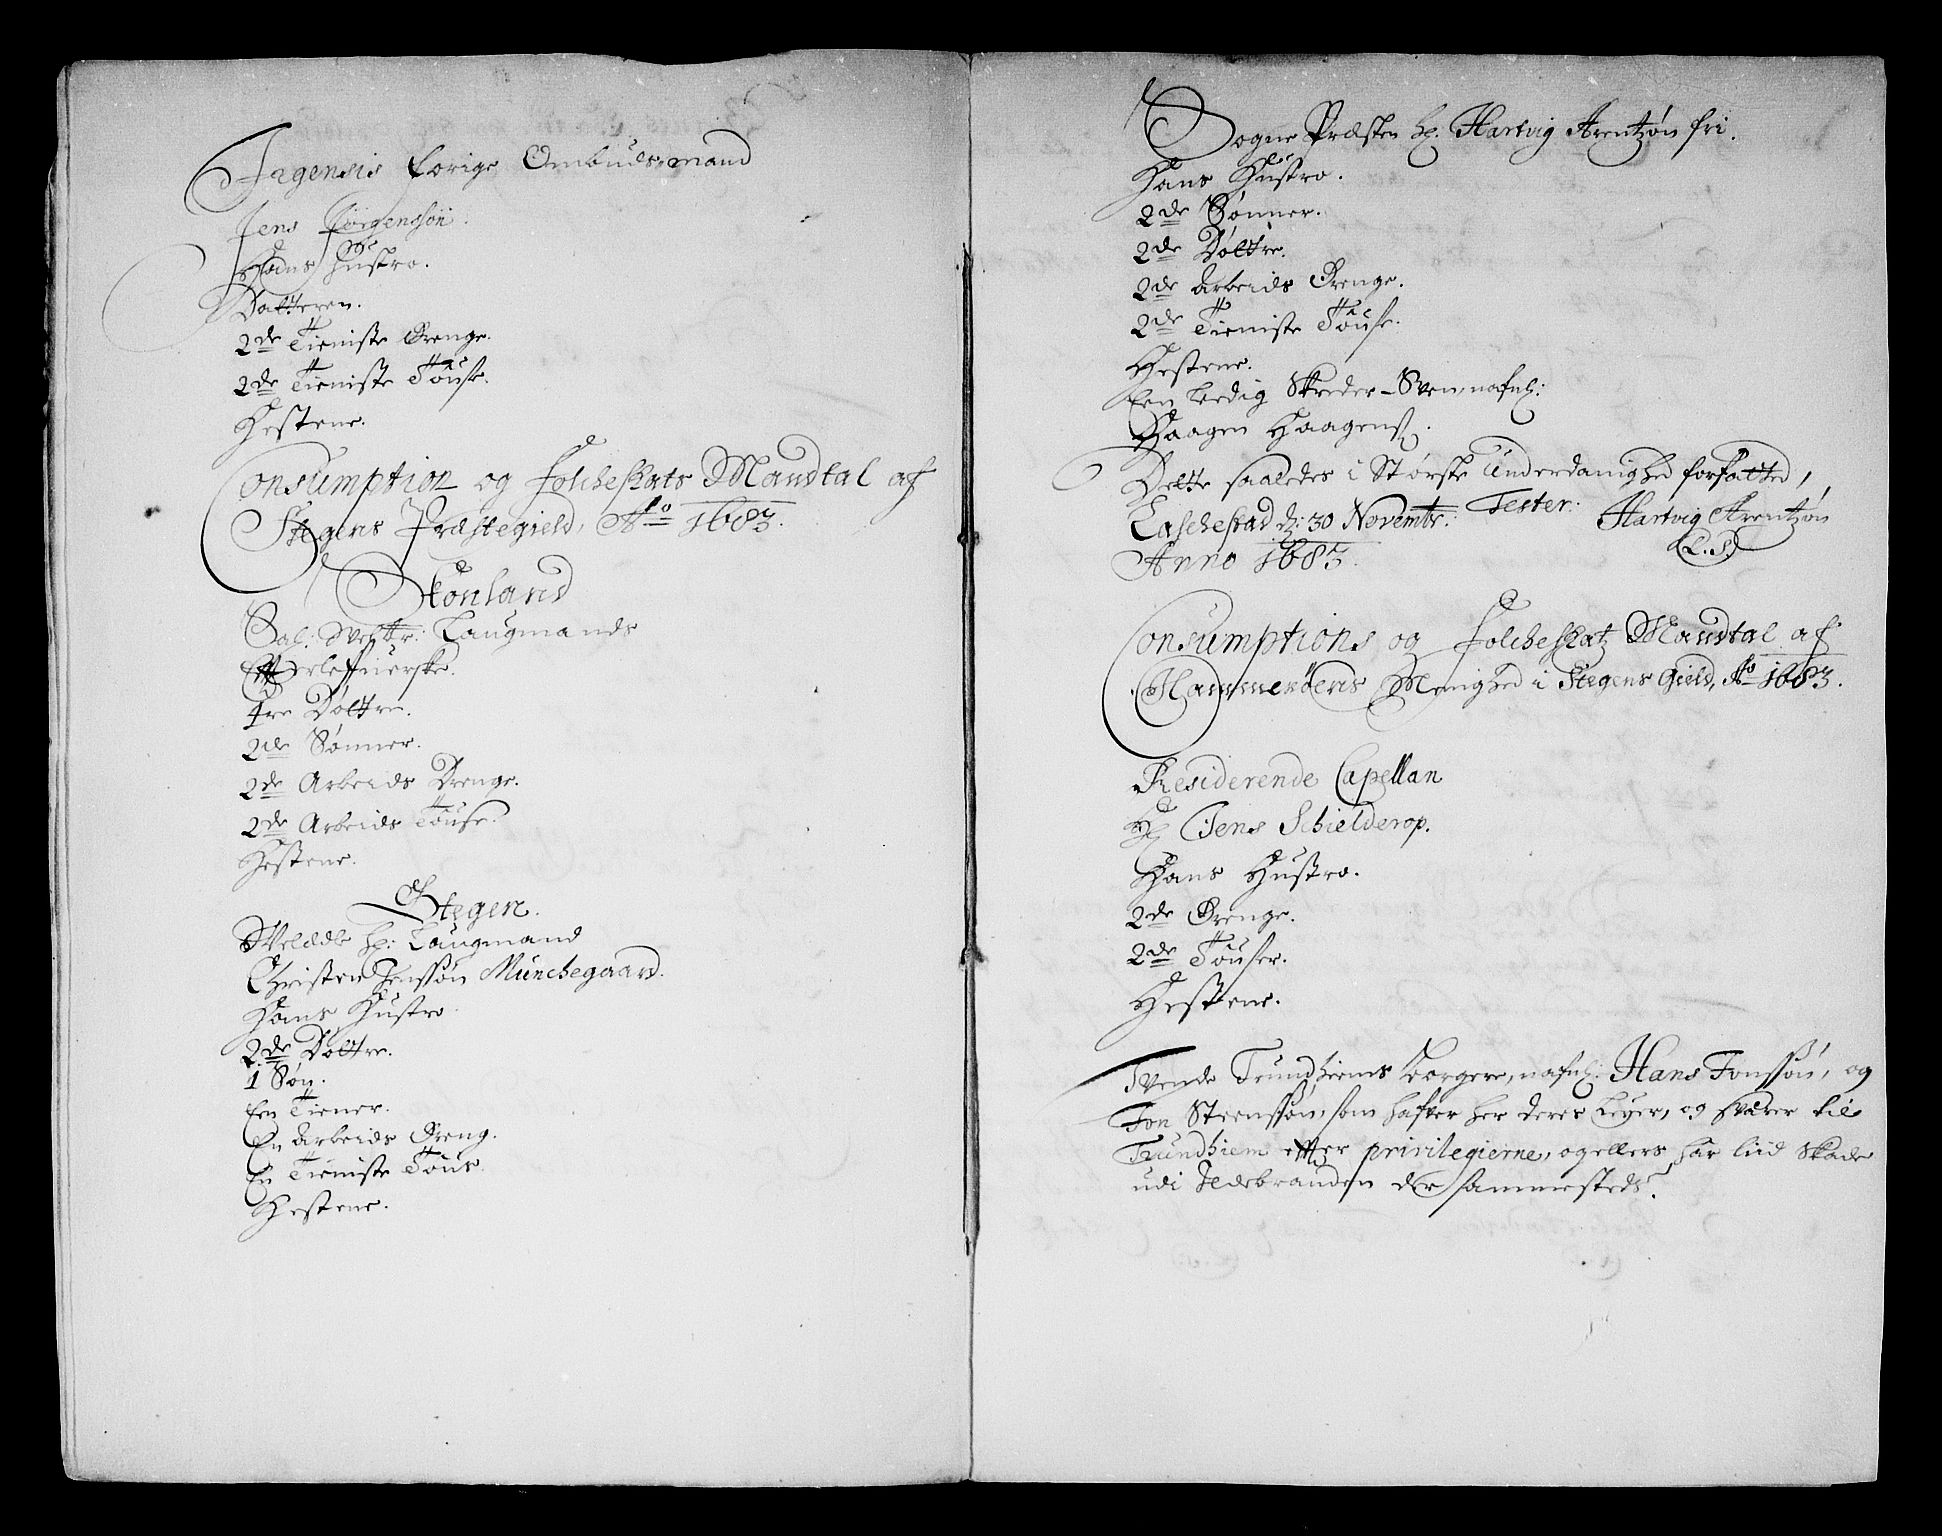 Jagensis forige Ombudsmand
Jens Jörgenssön.
Hans Hustro.
Datteren.
2de Tieniste Drenge.
2de Tieniste Töuse.
Hestene.
Consumption og Folcheskats Mandtal af
Stegens Præstegield, Ao 1683.
Skonland
Sal: Velbr: Laugmands
Efterlefuerske.
fre Döttre.
2de Sønner.
2de Arbeids Drenge.
2de Arbeids Töuse.
Hestene.
Stegen.
Velædle Hr: Laugmand
Christen Jenssøn Munchegaard.
Hans Hustro
2de Dottre.
1 Søn.
Een Tiener.
En Arbeids Dreng.
En Tieniste Tøus.
Hestene.
Sogne Præsten Hr: Hartvig Arentzøn fri.
Hans Hustro.
2de Sønner.
2de Döttre.
2de Arbeids Drenge.
2de Tieniste Töuse.
Hestene.
Een Ledig Skreder-Sven, nafnl:
Haagen Haagens.
Dette saaledes i Største Underdanighed forfatted,
Laschestad d: 30 Novembr: Tester: Hartvig Arentzøn
Anno 1683. (L.S.)
Consumptions og Folcheskatz Mandtal af
Hammeröens Menighed i Stegens Gield, Ao 1683.
Residerende Capellan
Hr Jens Schielderop.
Hans Hustro.
2de Drenge.
2de Töuser.
Hestene.
Tvende Trundhiems Borgere, nafnl: Hans Jonssøn, og
Jon Steenssøn, som hafver her deres Leyer, og svarer til
Trundhiem efter privilegierne, og ellers har liid Skade
udi Ildebranden der sammesteds.